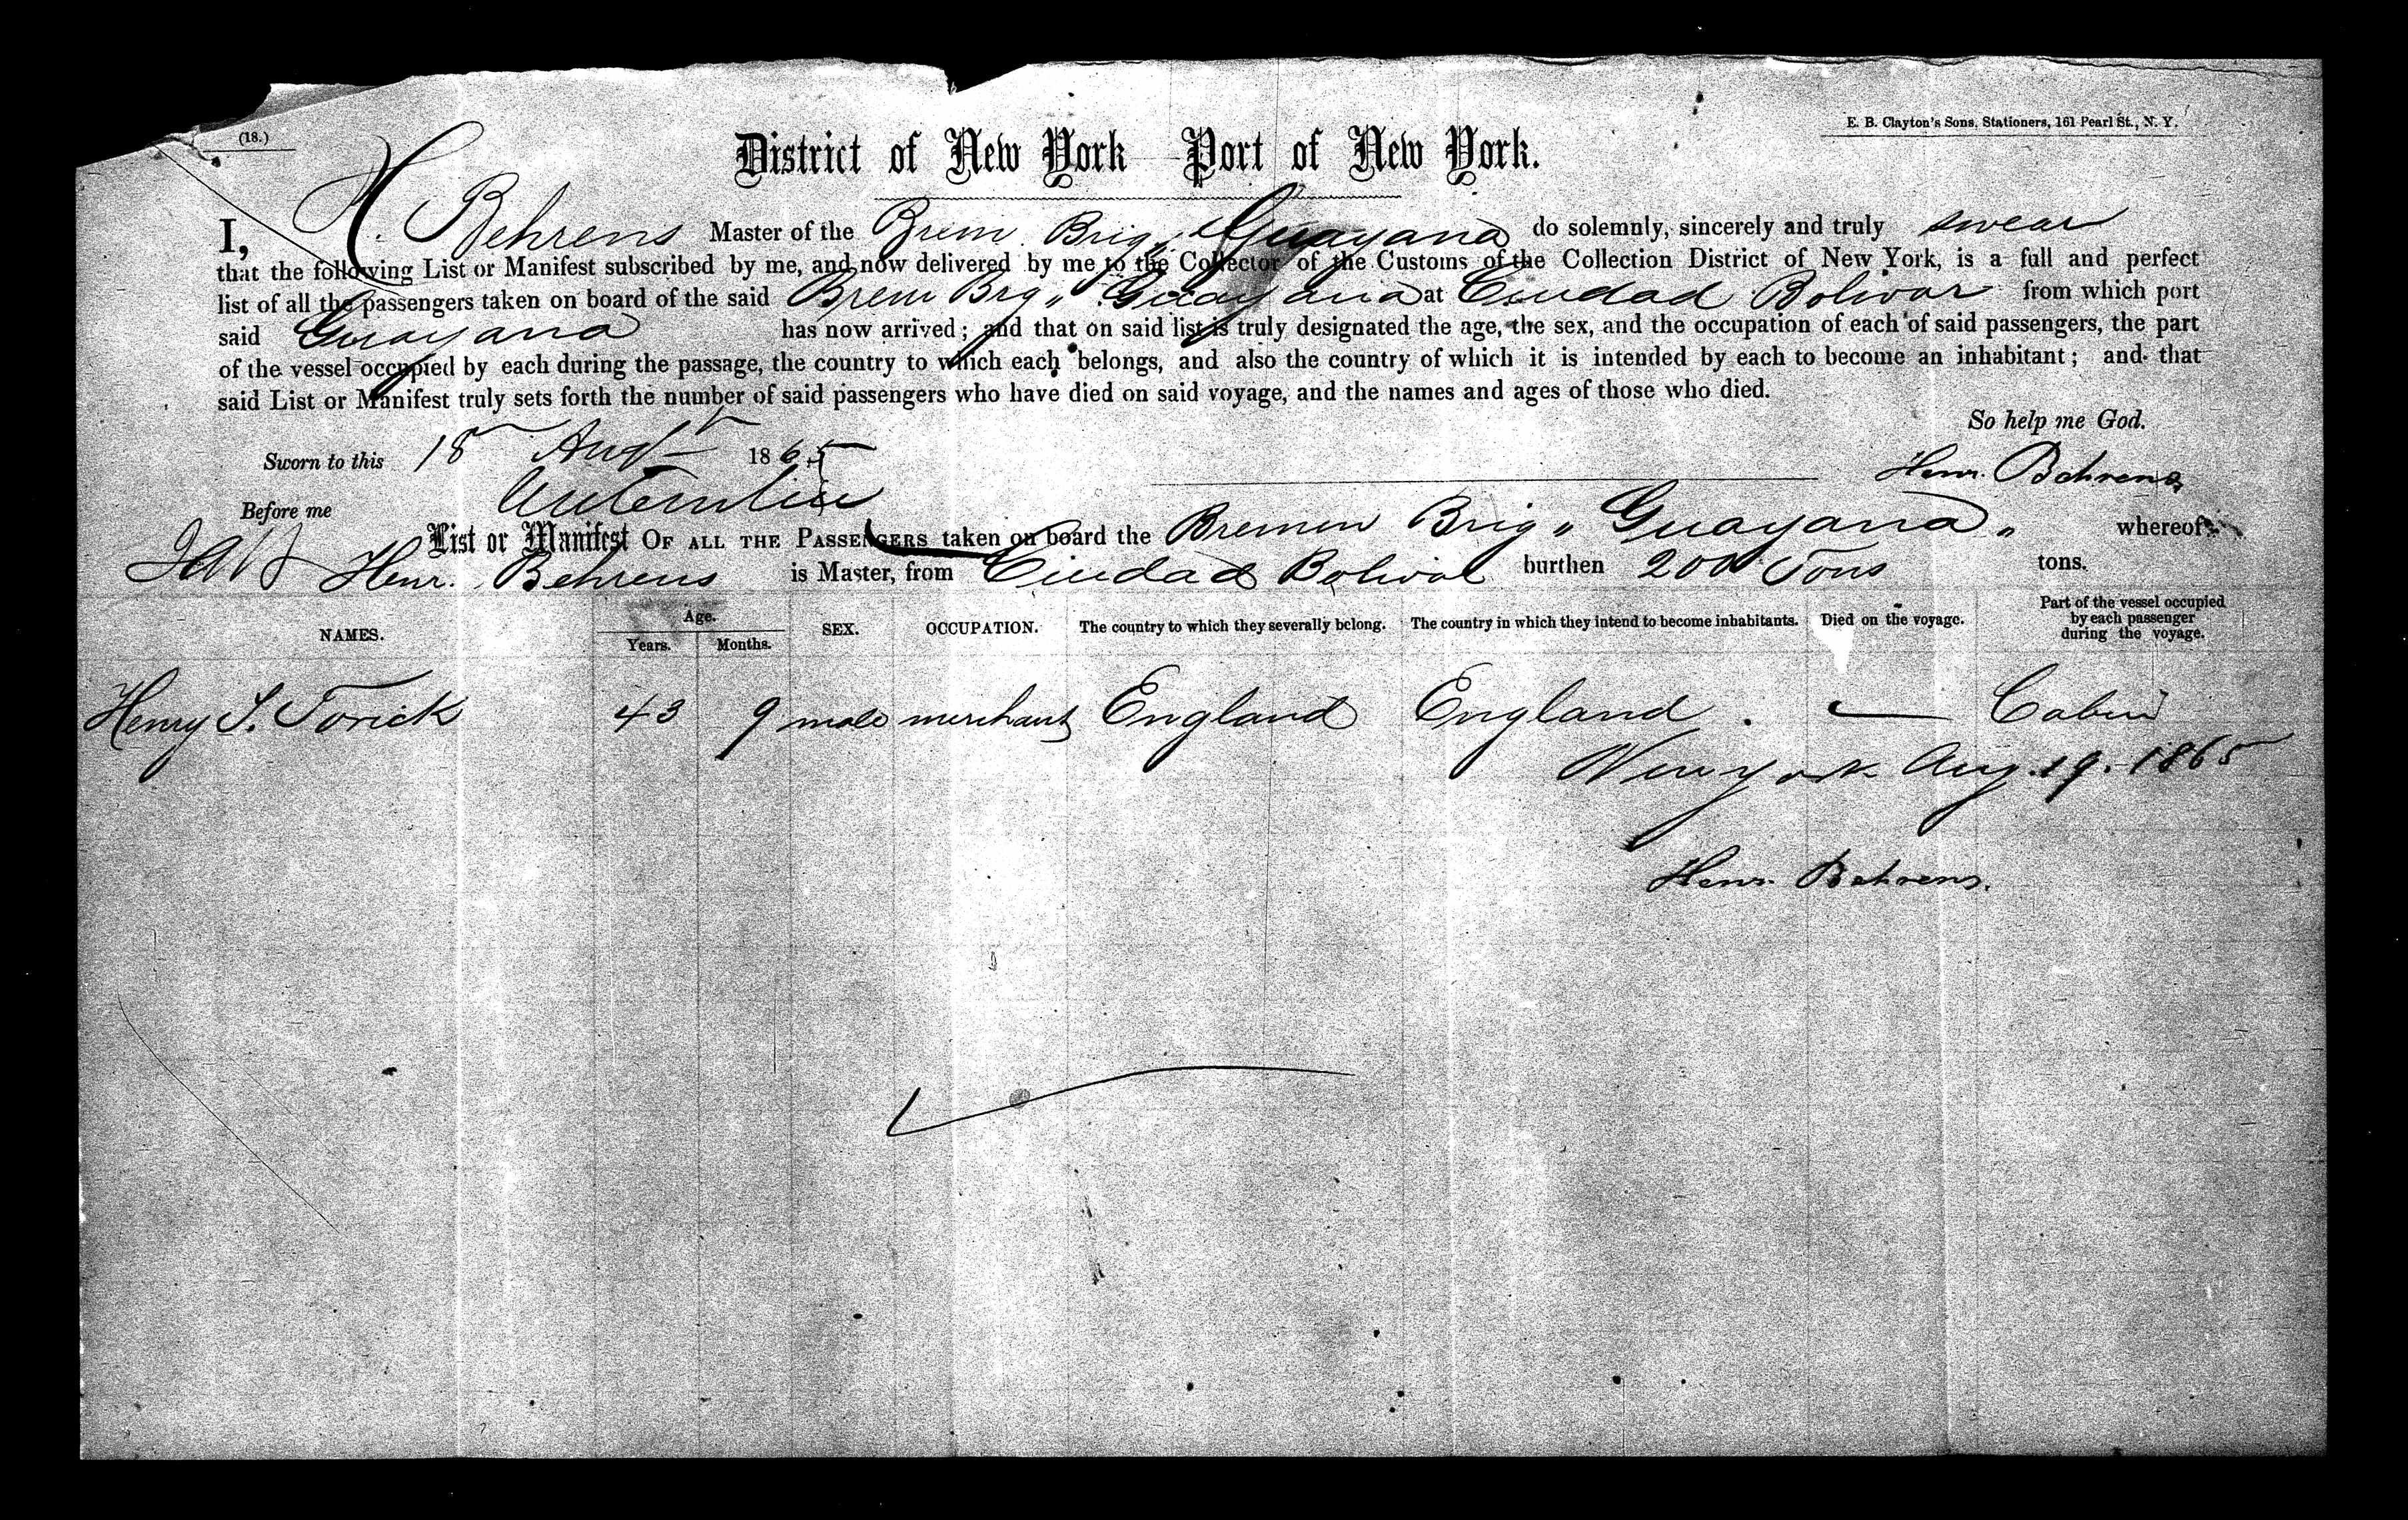 (18.)
E. B. Clayton's Sons, Stationers, 161 Pearl St., N. Y.
District of New York Port of New York.
I, H. Behrens Master of the Brem Brig „ Guayana do solemnly, sincerely and truly swear
that the following List or Manifest subscribed by me, and now delivered by me to the Collector of the Customs of the Collection District of New York, is a full and perfect
list of all the passengers taken on board of the said Brem Brg „ Guayana at Ciudad Bolivar from which port
said Guayana has now arrived; and that on said list is truly designated the age, the sex, and the occupation of each of said passengers, the part
of the vessel occupied by each during the passage, the country to which each belongs, and also the country of which it is intended by each to become an inhabitant; and that
said List or Manifest truly sets forth the number of said passengers who have died on said voyage, and the names and ages of those who died.
So help me God.
Sworn to this 18 Augt 1865
Henr. Behrens
Before me
List or Manifest OF ALL THE PASSENGERS taken on board the Bremen Brig „ Guayana „ whereof
Henr. Behrens is Master, from Ciudad Bolivar burthen 200 Tons tons.
NAMES. Age. Years. Months. SEX. OCCUPATION. The country to which they severally belong. The country in which they intend to become inhabitants. Died on the voyage. Part of the vessel occupied by each passenger during the voyage.
Henry S. Torick 43 9 male merchant England England. — Cabin
New york Aug. 19. 1865
Henr. Behrens.